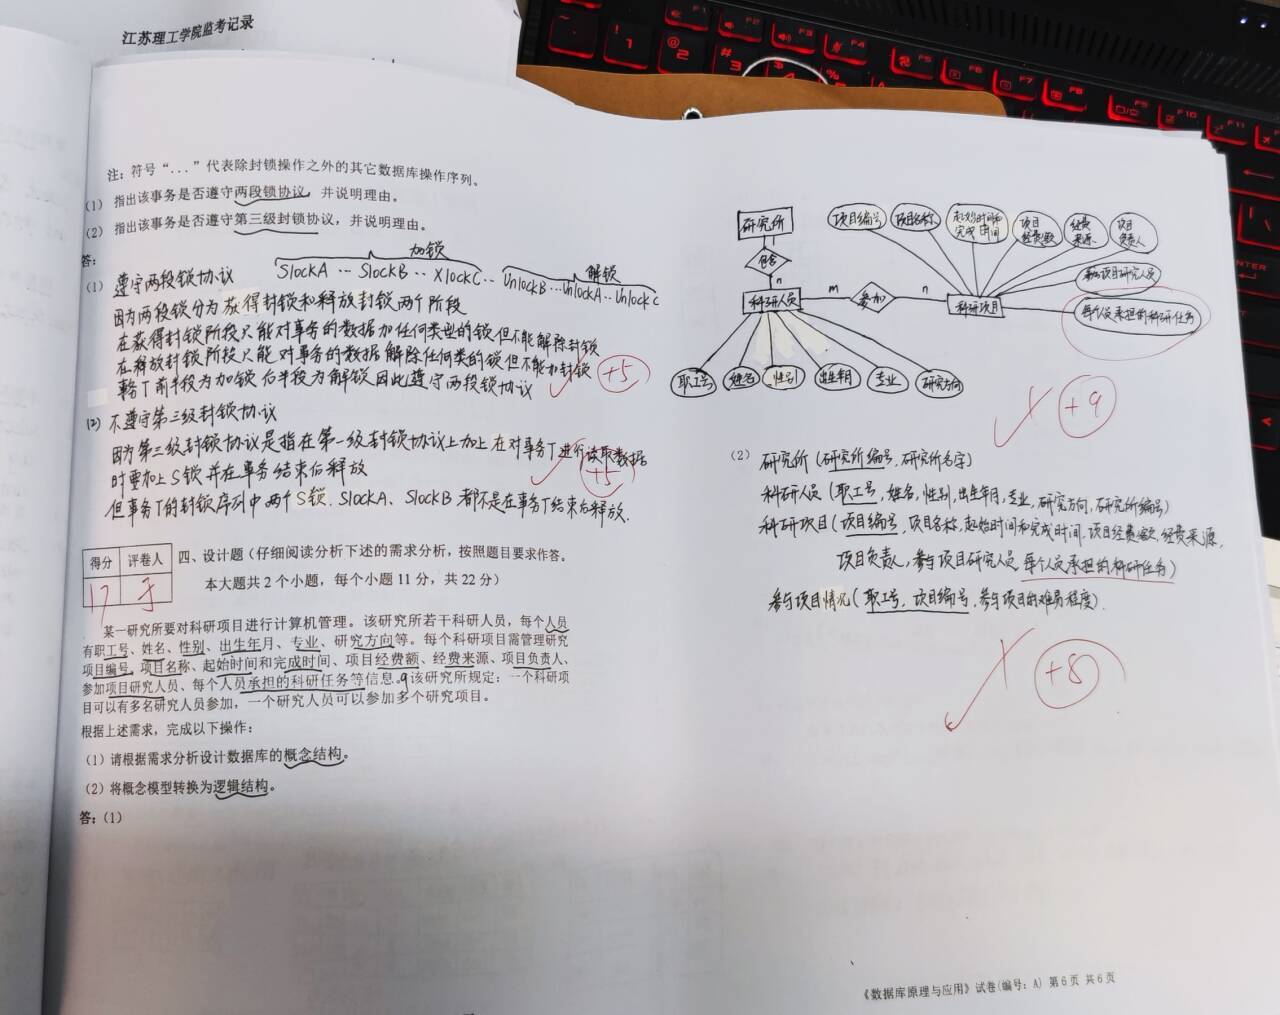 江苏理工学院监考记录
注：符号“...”代表除封锁操作之外的其它数据库操作序列。
(1) 指出该事务是否遵守两段锁协议，并说明理由。
(2) 指出该事务是否遵守第三级封锁协议，并说明理由。
答：
加锁
解锁
SlockA … SlockB … XlockC … UnlockB … UnlockA … UnlockC
(1) 遵守两段锁协议
因为两段锁分为获得封锁和释放封锁两个阶段
在获得封锁阶段只能对事务的数据加任何类型的锁但不能解除封锁
在释放封锁阶段只能对事务的数据解除任何类的锁但不能加封锁
事务T前半段为加锁后半段为解锁因此遵守两段锁协议
+5
(2) 不遵守第三级封锁协议
因为第三级封锁协议是指在第一级封锁协议上加上在对事务T进行读取数据
时要加上S锁并在事务结束后释放
+5
但事务T的封锁序列中两个S锁．SlockA、SlockB都不是在事务T结束后释放．
得分 评卷人
17
四、设计题（仔细阅读分析下述的需求分析，按照题目要求作答。
本大题共2个小题，每个小题11分，共22分）
某一研究所要对科研项目进行计算机管理。该研究所若干科研人员，每个人员
有职工号、姓名、性别、出生年月、专业、研究方向等。每个科研项目需管理研究
项目编号，项目名称、起始时间和完成时间、项目经费额、经费来源、项目负责人、
参加项目研究人员、每个人员承担的科研任务等信息。该研究所规定：一个科研项
目可以有多名研究人员参加，一个研究人员可以参加多个研究项目。
根据上述需求，完成以下操作：
(1) 请根据需求分析设计数据库的概念结构。
(2) 将概念模型转换为逻辑结构。
答：(1)
研究所
项目编号
项目名称
起始时间和
完成时间
项目
经费额
经费
来源
项目
负责人
1
包含
n
参与项目研究人员
科研人员
m
参加
n
科研项目
每个人员承担的科研任务
职工号
姓名
性别
出生年月
专业
研究方向
+9
(2) 研究所（研究所编号，研究所名字）
科研人员（职工号，姓名，性别，出生年月，专业，研究方向，研究所编号）
科研项目（项目编号，项目名称，起始时间和完成时间，项目经费额，经费来源，
项目负责人，参与项目研究人员，每个人员承担的科研任务）
参与项目情况（职工号，项目编号，参与项目的难易程度）．
+8
《数据库原理与应用》试卷(编号：A) 第6页 共6页